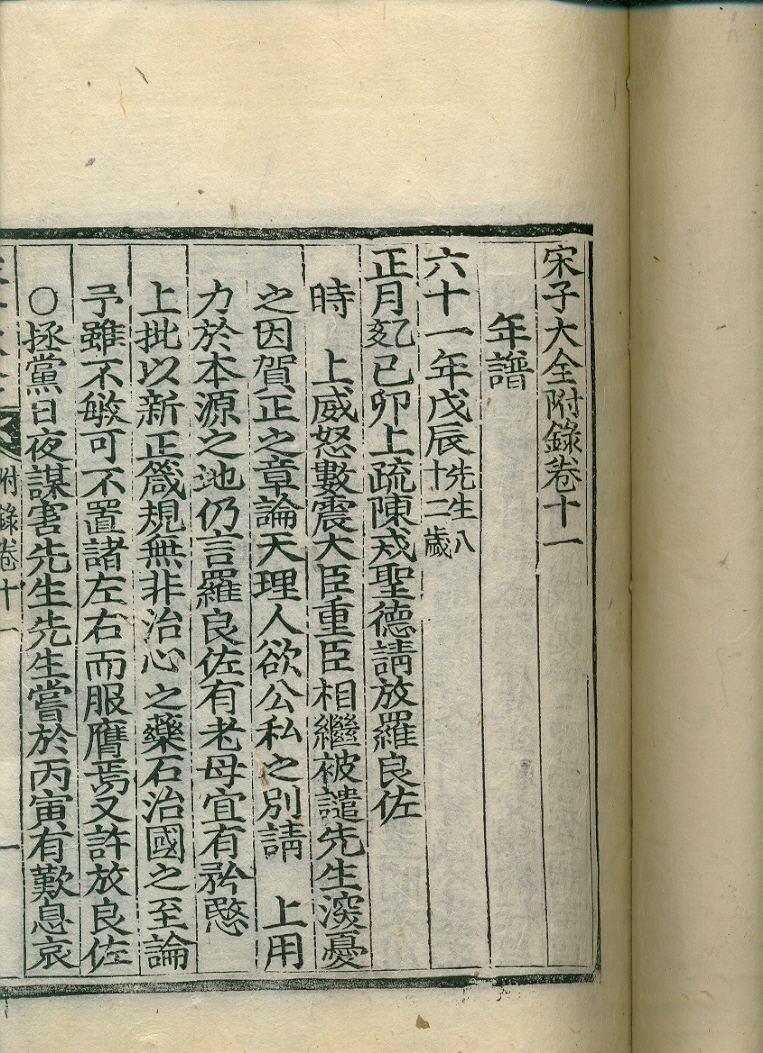 宋子大全附錄卷十一
年譜
六十一年戊辰先生八十二歲
正月乙亥己卯上疏陳戒聖德請放羅良佐
時 上威怒數震大臣重臣相繼被譴先生深憂
之因賀正之章論天理人欲公私之別請 上用
力於本源之地仍言羅良佐有老母宜有矜愍
上批以新正箴規無非治心之藥石治國之至論
予雖不敏可不置諸左右而服膺焉又許放良佐
○拯黨日夜謀害先生先生嘗於丙寅有歎息哀
附錄卷十一 一